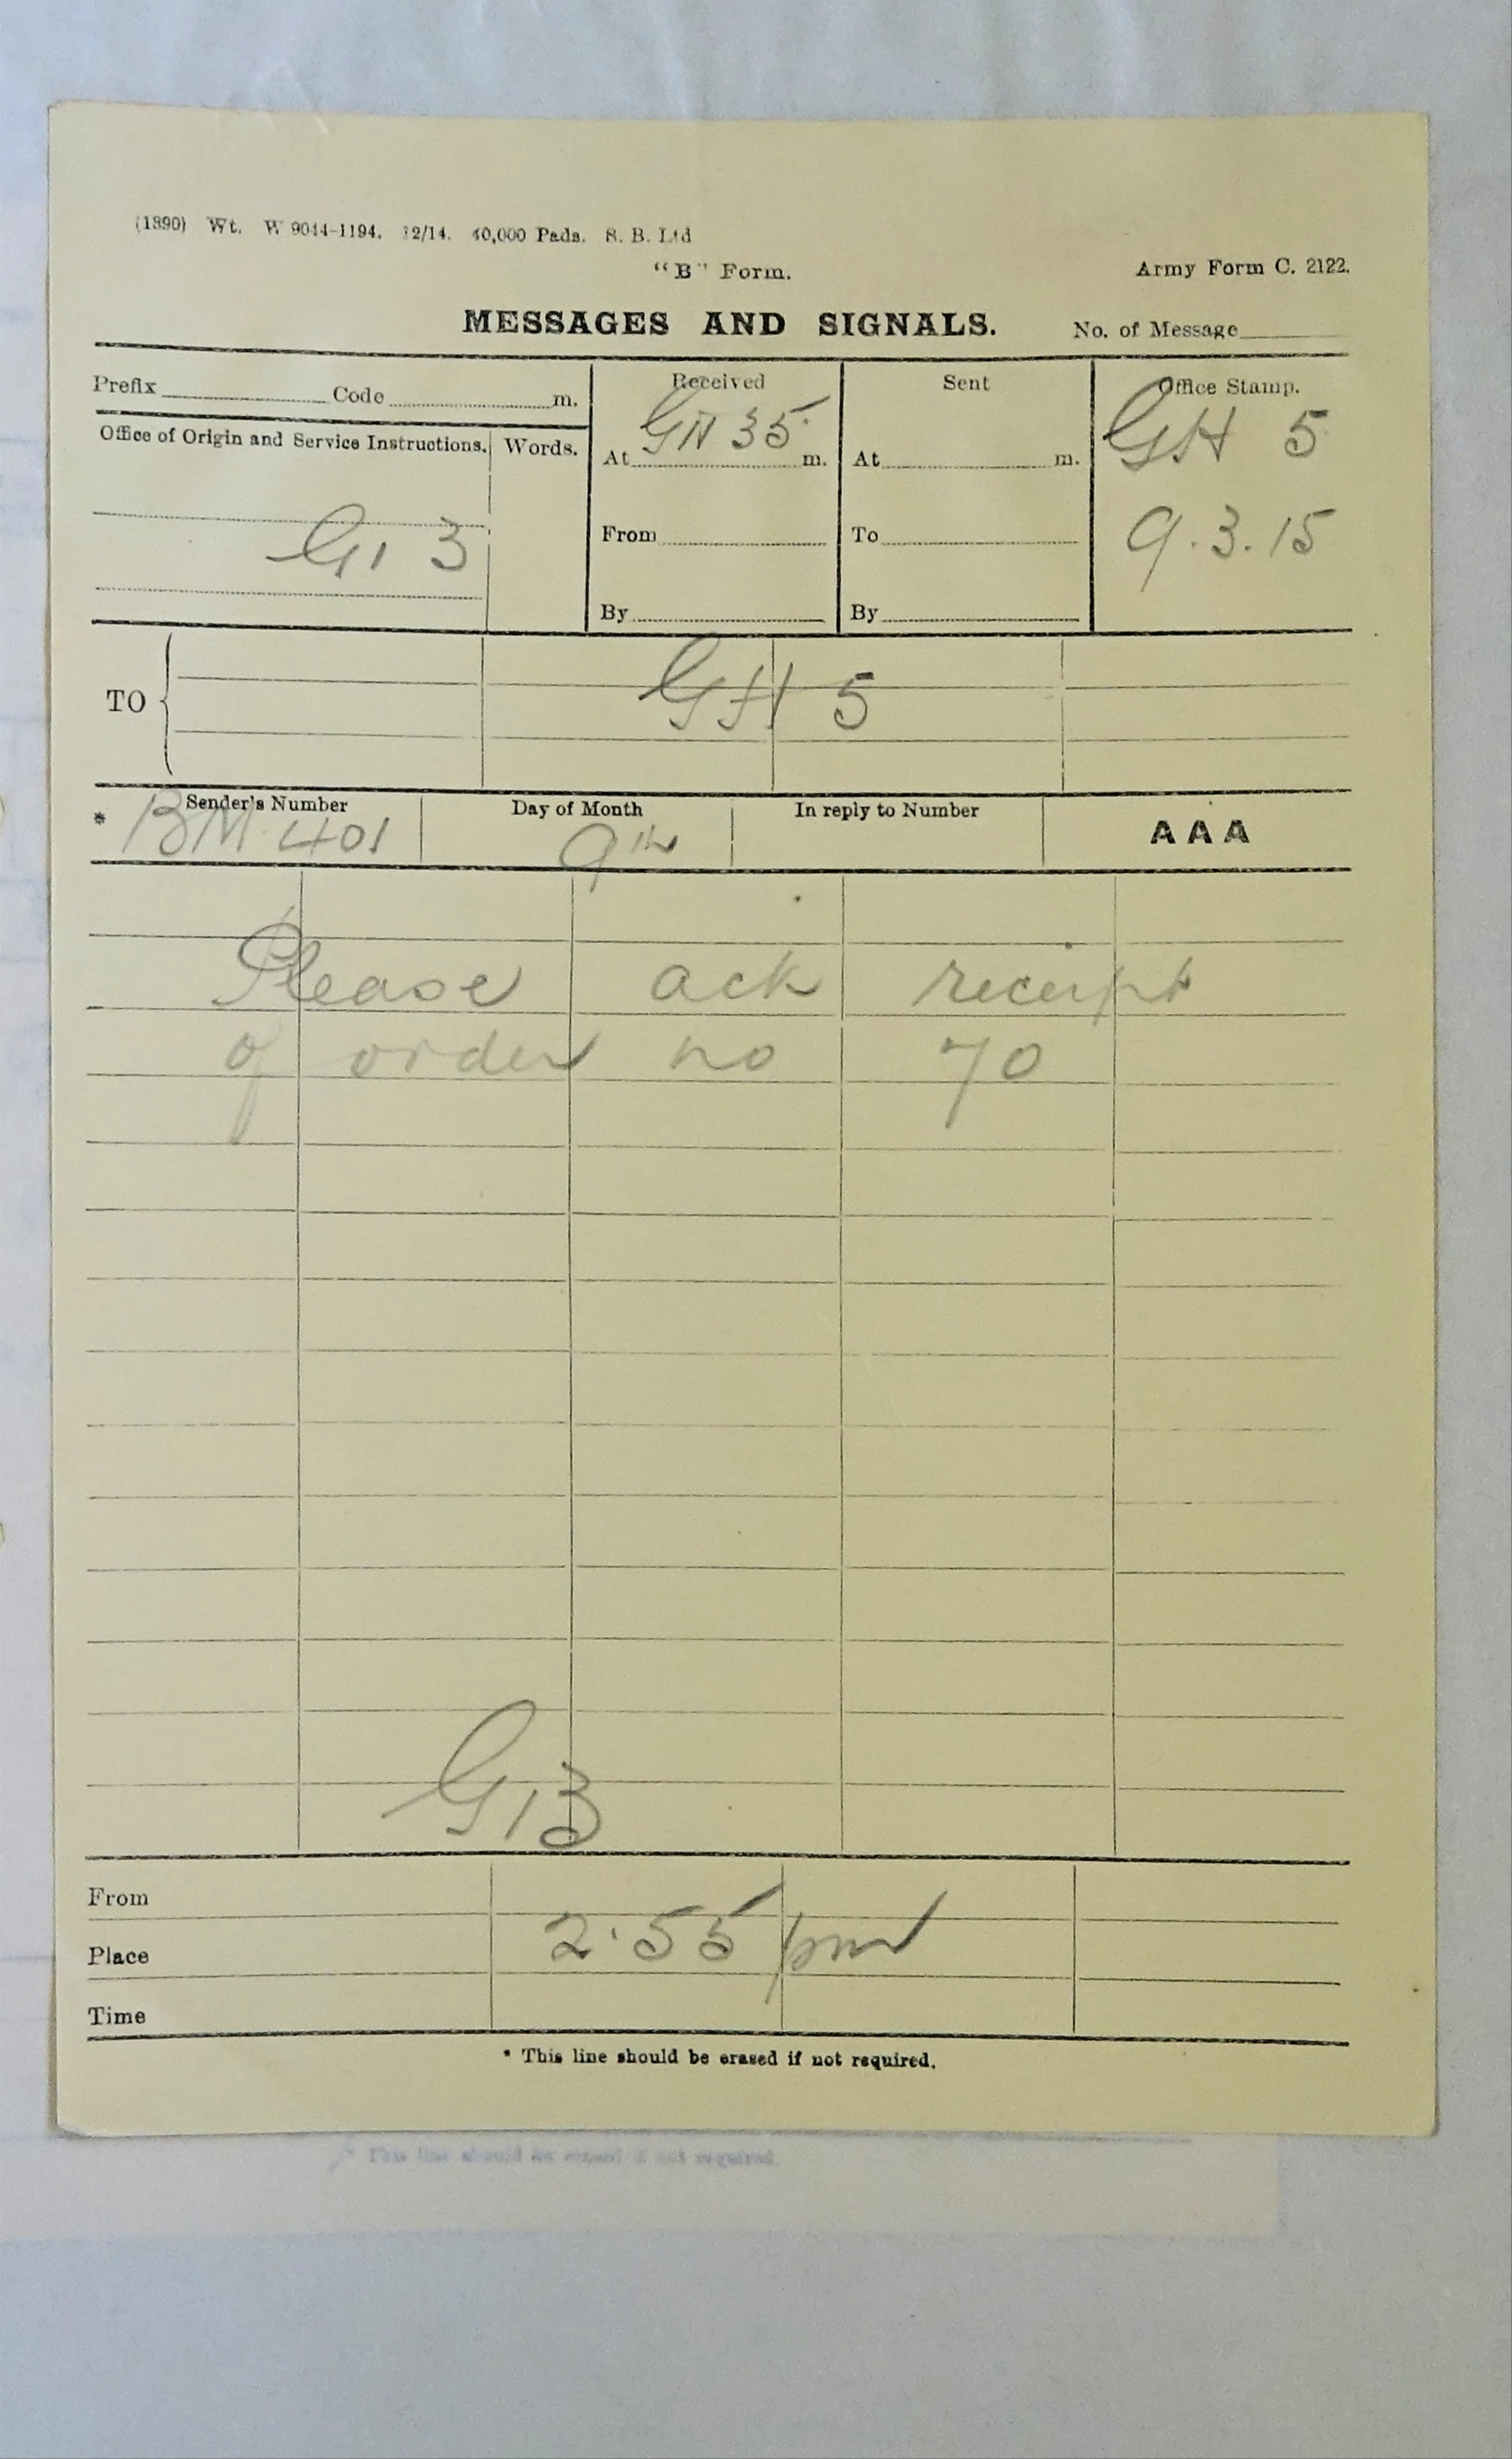 (1890) Wt. W 9044-1194. 12/14. 40,000 Pads. S. B. Ltd
"B" Form.
Army Form C. 2122.
MESSAGES AND SIGNALS.
No. of Message
Prefix Code m.
Received
Sent
Office Stamp.
Office of Origin and Service Instructions.
Words.
GN 35
At m.
At m.
GH 5
G1 3
From
To
9.3.15
By
By
TO
GH 5
* Sender's Number
Day of Month
In reply to Number
AAA
BM 401
9th
Please ack receipt
of order no 70
G13
From
Place
2.55 pm
Time
* This line should be erased if not required.
* This line should be erased if not required.